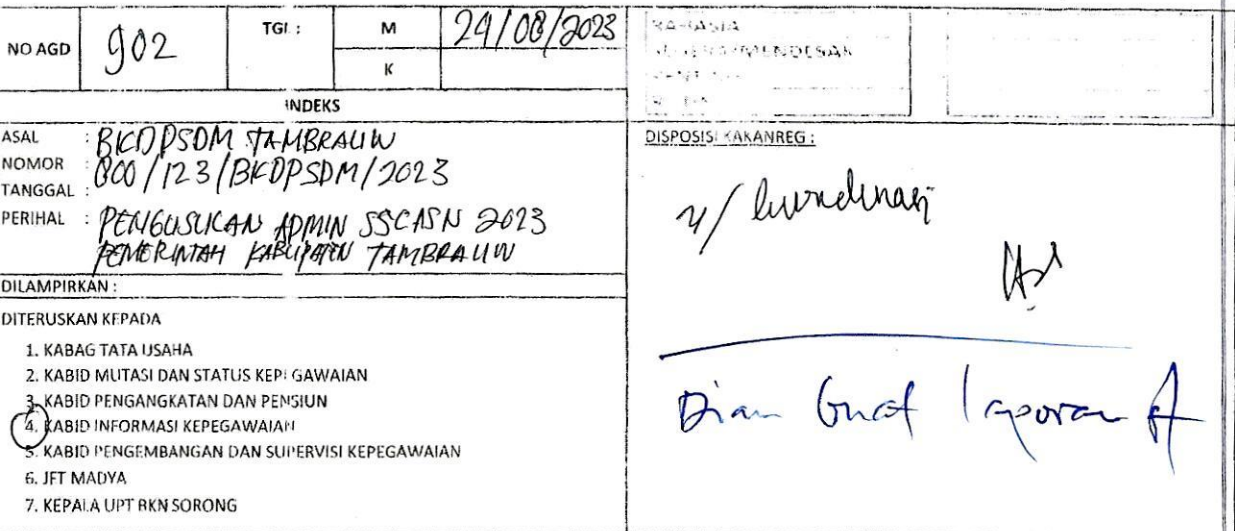 NO AGD 902 TGL : M 24/08/2023
K
RAHASIA
SEGERA/MENDESAK
INDEKS
ASAL : BKDPSDM TAMBRAUW
NOMOR : 800/123/BKDPSDM/2023
TANGGAL :
PERIHAL : PENGUSULAN ADMIN SSCASN 2023
PEMERINTAH KABUPATEN TAMBRAUW
DILAMPIRKAN :
DITERUSKAN KEPADA
1. KABAG TATA USAHA
2. KABID MUTASI DAN STATUS KEPEGAWAIAN
3. KABID PENGANGKATAN DAN PENSIUN
4. KABID INFORMASI KEPEGAWAIAN
5. KABID PENGEMBANGAN DAN SUPERVISI KEPEGAWAIAN
6. JFT MADYA
7. KEPALA UPT BKN SORONG
DISPOSISI KAKANREG :
Dian buat laporan